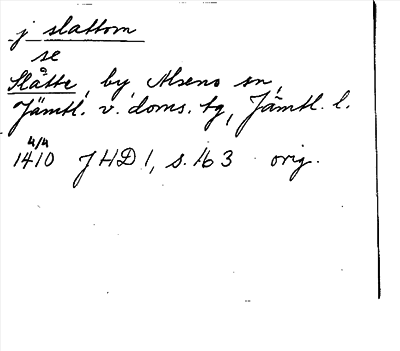 j slattom
se
Slåtte, by Alsens sn,
Jämtl. v. doms. tg, Jämtl. l.
4/4
1410 JHD 1, s. 163 orig.